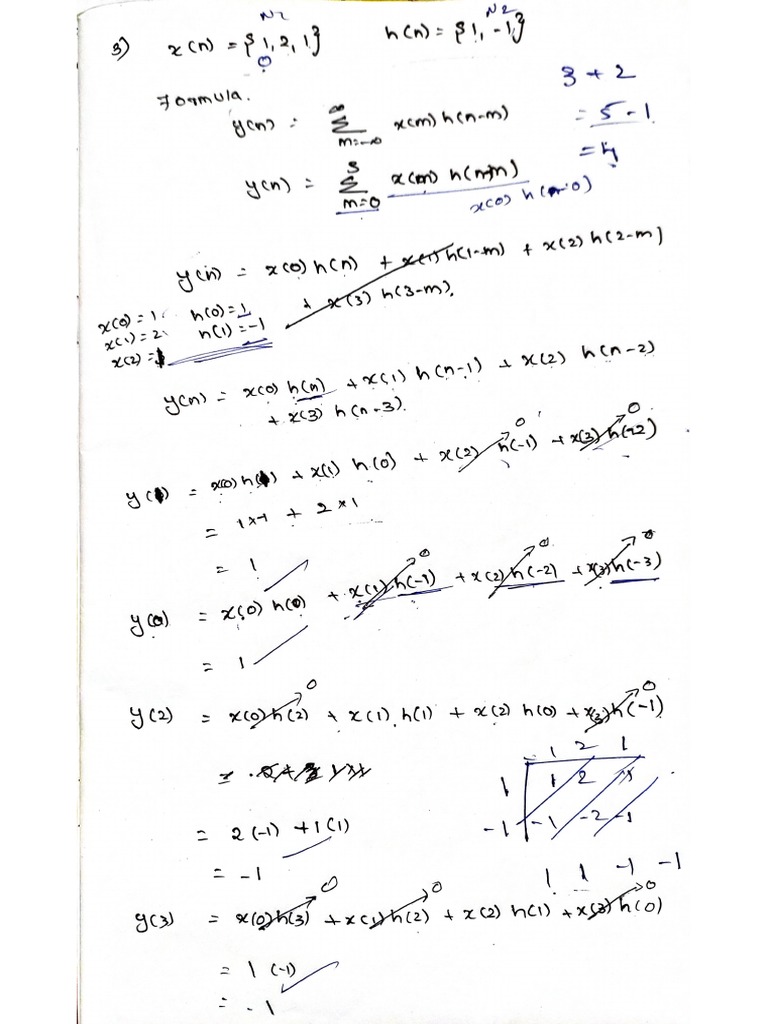 N1
N2
3) x(n) = {1, 2, 1} h(n) = {1, -1}
0
Formula.
3 + 2
y(n) = ∞ Σ m=-∞ x(m) h(n-m)
= 5 - 1
= 4
y(n) = 3 Σ m=0 x(m) h(n-m)
x(0) h(n-0)
y(n) = x(0) h(n) + x(1) h(1-m) + x(2) h(2-m)
+ x(3) h(3-m).
x(0) = 1 h(0) = 1
x(1) = 2 h(1) = -1
x(2) = 1
y(n) = x(0) h(n) + x(1) h(n-1) + x(2) h(n-2)
+ x(3) h(n-3).
y(1) = x(0) h(1) + x(1) h(0) + x(2) h(-1) 0 + x(3) h(-2) 0
= 1x-1 + 2x1
= 1
y(0) = x(0) h(0) + x(1) h(-1) 0 + x(2) h(-2) 0 + x(3) h(-3) 0
= 1
y(2) = x(0) h(2) 0 + x(1) h(1) + x(2) h(0) + x(3) h(-1) 0
= 2(-1) + 1(1)
= -1
1 2 1
1 1 2 1
-1 -1 -2 -1
1 1 -1 -1
y(3) = x(0) h(3) 0 + x(1) h(2) 0 + x(2) h(1) + x(3) h(0) 0
= 1 (-1)
= -1